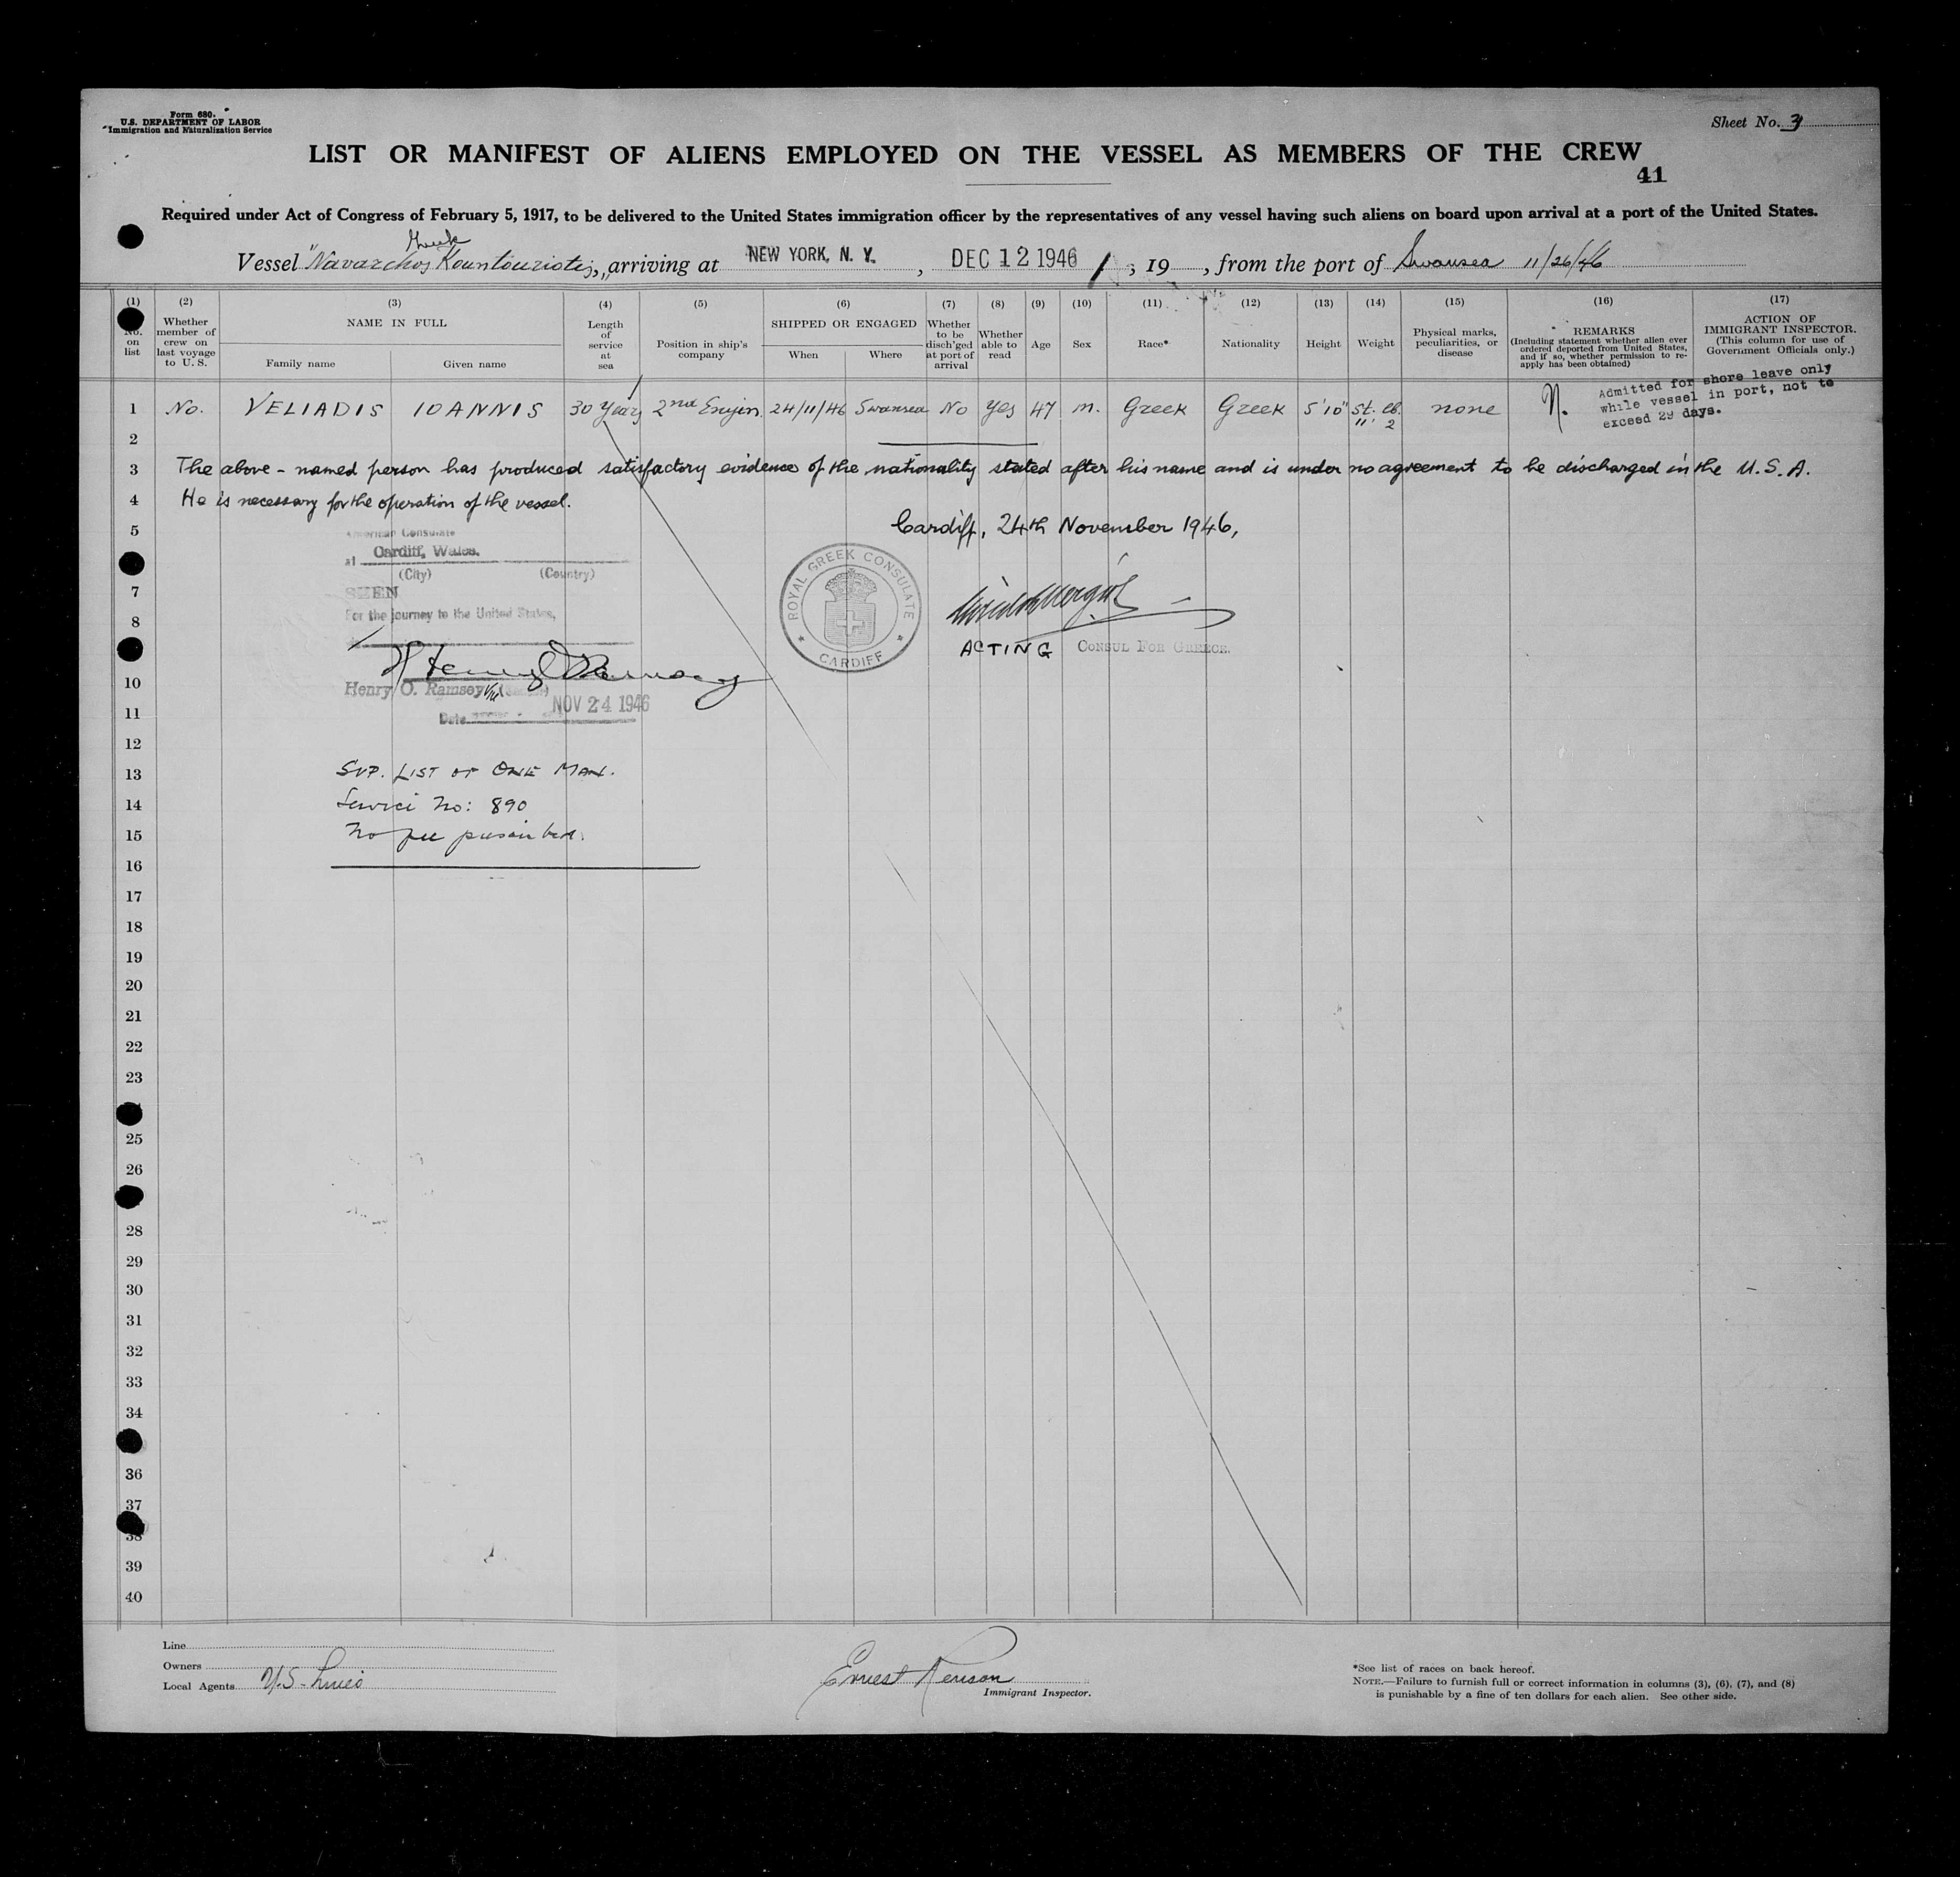 Form 680.
U.S. DEPARTMENT OF LABOR
Immigration and Naturalization Service
Sheet No. 3
LIST OR MANIFEST OF ALIENS EMPLOYED ON THE VESSEL AS MEMBERS OF THE CREW
41
Required under Act of Congress of February 5, 1917, to be delivered to the United States immigration officer by the representatives of any vessel having such aliens on board upon arrival at a port of the United States.
Greek
Vessel "Navarchos Kountouriotis", arriving at NEW YORK, N. Y. , DEC 12 1946 , 19 , from the port of Swansea 11/26/46
(1) (2) (3) (4) (5) (6) (7) (8) (9) (10) (11) (12) (13) (14) (15) (16) (17)
No. on list
Whether member of crew on last voyage to U. S.
NAME IN FULL
Family name
Given name
Length of service at sea
Position in ship's company
SHIPPED OR ENGAGED
When
Where
Whether to be disch'ged at port of arrival
Whether able to read
Age
Sex
Race*
Nationality
Height
Weight
Physical marks, peculiarities, or disease
REMARKS
(Including statement whether alien ever ordered deported from United States, and if so, whether permission to reapply has been obtained)
ACTION OF IMMIGRANT INSPECTOR.
(This column for use of Government Officials only.)
1 No. VELIADIS IOANNIS 30 Years 2nd Engin. 24/11/46 Swansea No Yes 47 m. Greek Greek 5'10" St. lb. 11 2 none N.
Admitted for shore leave only
while vessel in port, not to
exceed 29 days.
2
3 The above-named person has produced satisfactory evidence of the nationality stated after his name and is under no agreement to be discharged in the U.S.A.
4 He is necessary for the operation of the vessel.
5 Cardiff, 24th November 1946,
American Consulate
at Cardiff, Wales.
(City) (Country)
7 SEEN
8 For the journey to the United States,
ROYAL GREEK CONSULATE
CARDIFF
ACTING CONSUL FOR GREECE.
10 Henry O. Ramsey
11 Date NOV 24 1946
12
13 SUP. LIST OF ONE MAN.
14 Service No: 890
15 No fee prescribed.
16
17
18
19
20
21
22
23
25
26
28
29
30
31
32
33
34
36
37
38
39
40
Line
Owners
Local Agents U.S. Lines
Ernest
Immigrant Inspector.
*See list of races on back hereof.
NOTE.—Failure to furnish full or correct information in columns (3), (6), (7), and (8)
is punishable by a fine of ten dollars for each alien. See other side.